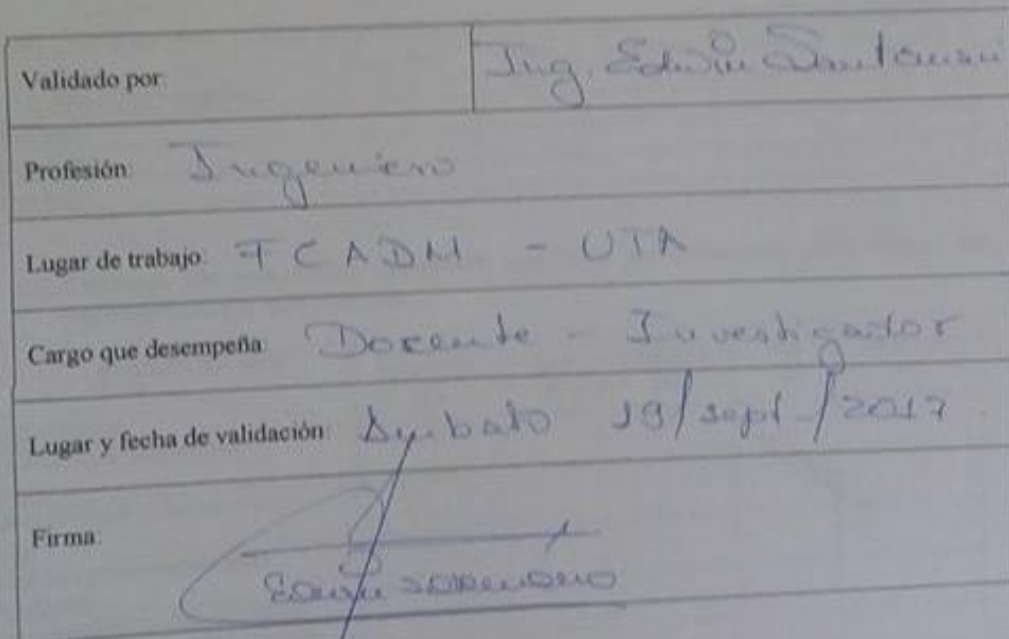 Validado por: Ing. Edwin Santamaría
Profesión: Ingeniero
Lugar de trabajo: FCADM - UTA
Cargo que desempeña: Docente - Investigador
Lugar y fecha de validación: Ambato 19/sept/2017
Firma:
Edwin